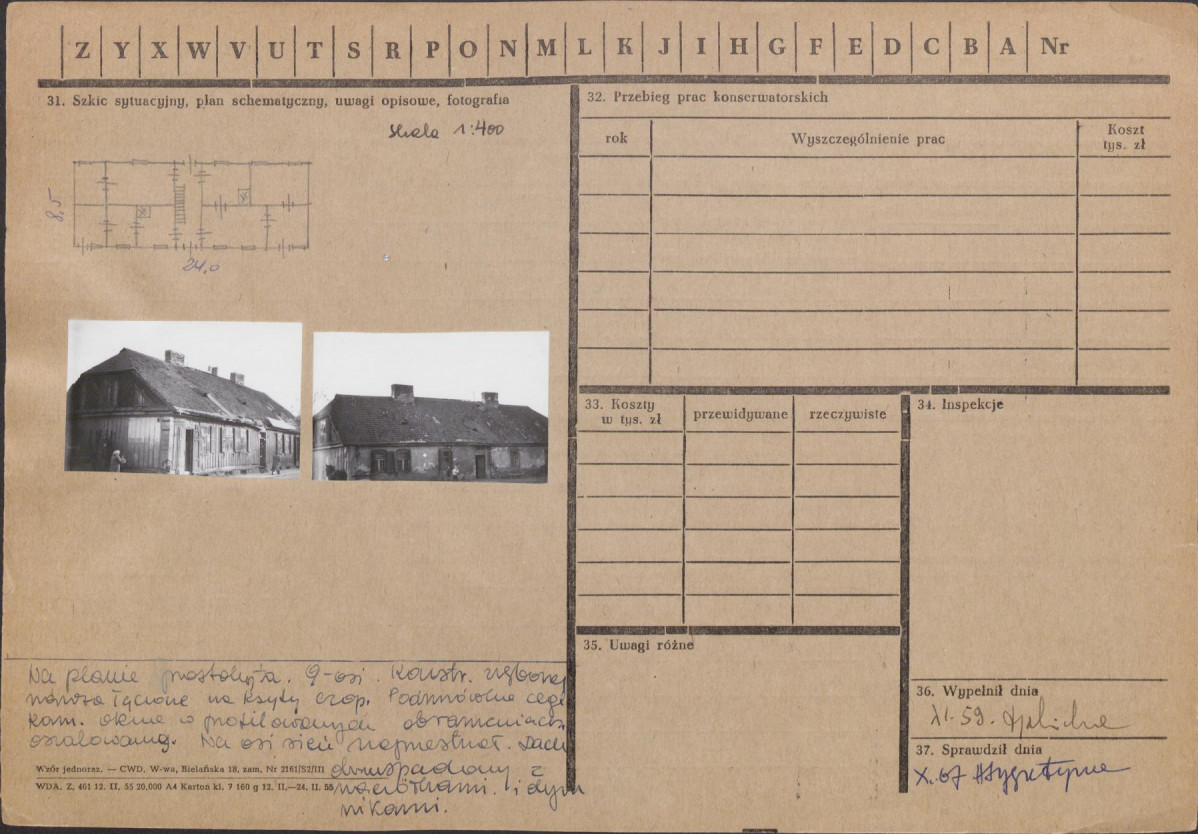 Z Y X W V U T S R P O N M L K J I H G F E D C B A Nr
31. Szkic sytuacyjny, plan schematyczny, uwagi opisowe, fotografia
skala 1:400
8,5
24,0
Na planie prostokąta. 9-osi. Konstr. zrębowej
naroża łączone na ksyty czop. Podmurówka cegl
kam. okna w profilowanych obramieniach
oszalowany. Na osi sień Dach
dwuspadowy z
naczółkami. i dym
nikami.
Wzór jednoraz. — CWD, W-wa, Bielańska 18, zam. Nr 2161/S2/III
WDA. Z. 461 12. II. 55 20,000 A4 Karton kl. 7 160 g 12. II.—24. II. 55
32. Przebieg prac konserwatorskich
rok
Wyszczególnienie prac
Koszt
tys. zł
33. Koszty
w tys. zł
przewidywane
rzeczywiste
34. Inspekcje
35. Uwagi różne
36. Wypełnił dnia
XI.59.
37. Sprawdził dnia
X.67